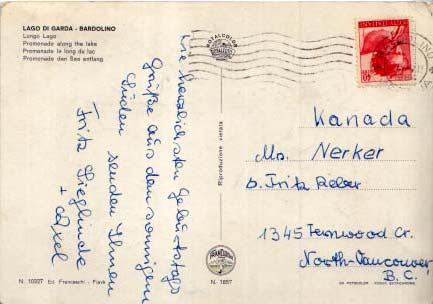 LAGO DI GARDA - BARDOLINO
Lungo Lago
Promenade along the lake
Promenade le long du lac
Promenade den See entlang
Die herzlichsten Geburtstags
Grüße aus dem sonnigen
Süden senden Ihnen
Fritz Sieglinde
+ Axel
N. 10227 Ed. Franceschi - Piave
ROTALCOLOR
Riproduzione vietata
N. 1857
Kanada
Ms. Nerker
b. Fritz Reber
1345 Fernwood Cr.
North-Vancouver
B.C.